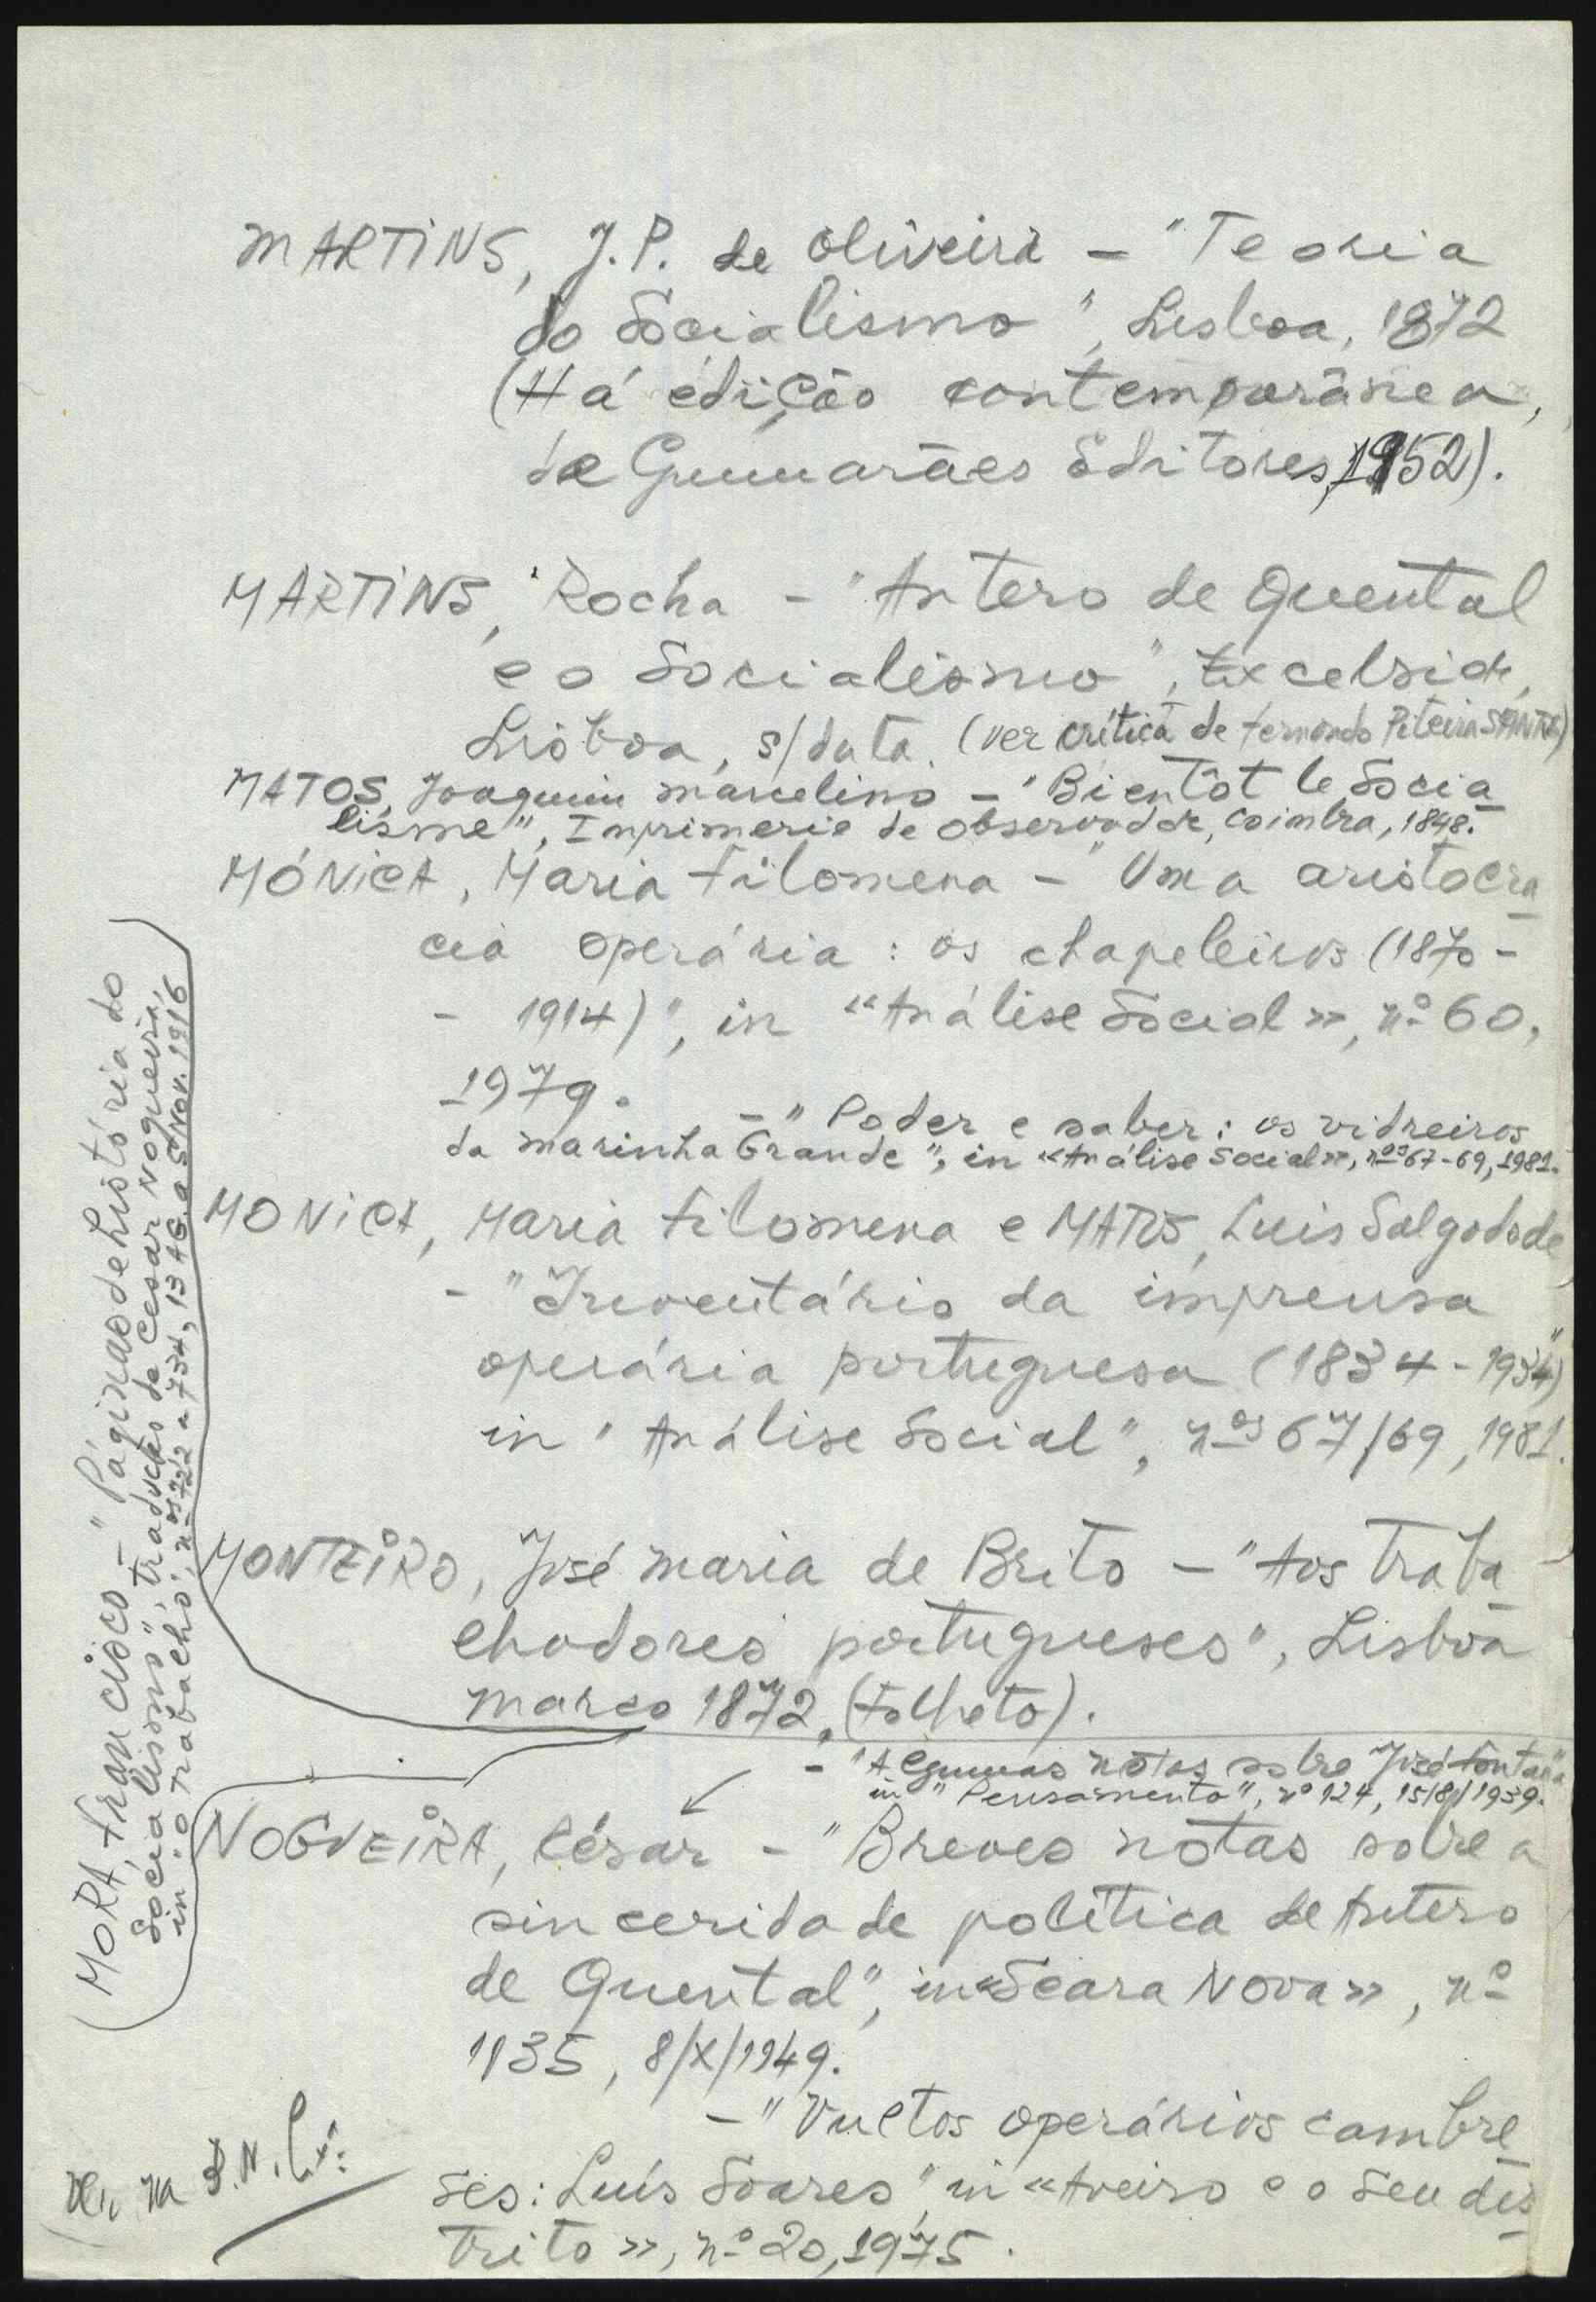 MARTINS, J.P. de Oliveira - "Teoria
do Socialismo", Lisboa, 1872
(Há edição contemporânea,
de Guimarães Editores, 1952).
MARTINS, Rocha - "Antero de Quental
e o Socialismo", Excelsior,
Lisboa, s/data. (ver crítica de Fernando Piteira SANTOS)
MATOS, Joaquim Marcelino - "Bientôt le Socia
lisme", Imprimerie de Observador, Coimbra, 1848.
MÓNICA, Maria Filomena - "Uma aristocra
cia operária: os chapeleiros (1870 -
- 1914)", in «Análise Social», nº 60,
1979.
- "Poder e saber: os vidreiros
da Marinha Grande", in «Análise Social», nos 67-69, 1981.
MONICA, Maria Filomena e MATOS, Luis Salgado de
- "Inventário da imprensa
operária portuguesa (1834-1934)"
in "Análise Social", nos 67/69, 1981.
MONTEIRO, José Maria de Brito - "Aos traba
lhadores portugueses", Lisboa
março 1872, (Folheto).
- "Algumas notas sobre José Fontana"
in "Pensamento", nº 124, 15/8/1939.
NOGUEIRA, César - "Breves notas sobre a
sinceridade política de Antero
de Quental", in «Seara Nova», nº
1135, 8/X/1949.
- "Vultos operários cambre
ses: Luís Soares", in «Aveiro e o seu dis
trito», nº 20, 1975.
MORA, Francisco - "Páginas de história do
Socialismo", tradução de Cesar Nogueira,
in "o trabalho", nos 722 a 734, 13 AG. a 5 Nov. 1916
na B.N. Lx: